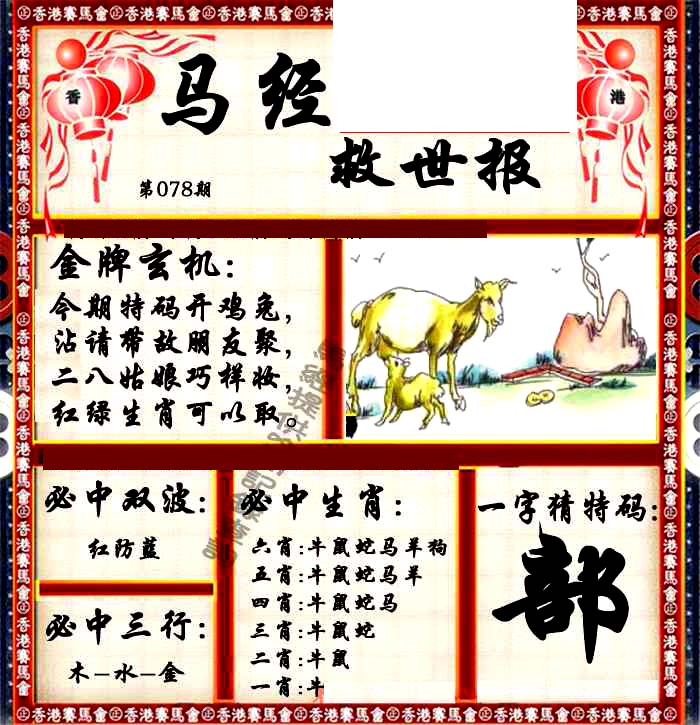 香港賽馬會 香港賽馬會 香港賽馬會 香港賽馬會 香港賽馬會
香
港
马经
救世报
第078期
金牌玄机:
今期特码开鸡兔,
沾请带故朋友聚,
二八姑娘巧样妆,
红绿生肖可以取。
必中双波:
红防蓝
必中三行:
木-水-金
必中生肖:
六肖:牛鼠蛇马羊狗
五肖:牛鼠蛇马羊
四肖:牛鼠蛇马
三肖:牛鼠蛇
二肖:牛鼠
一肖:牛
一字猜特码:
部
香港賽馬會 香港賽馬會 香港賽馬會 香港賽馬會 香港賽馬會